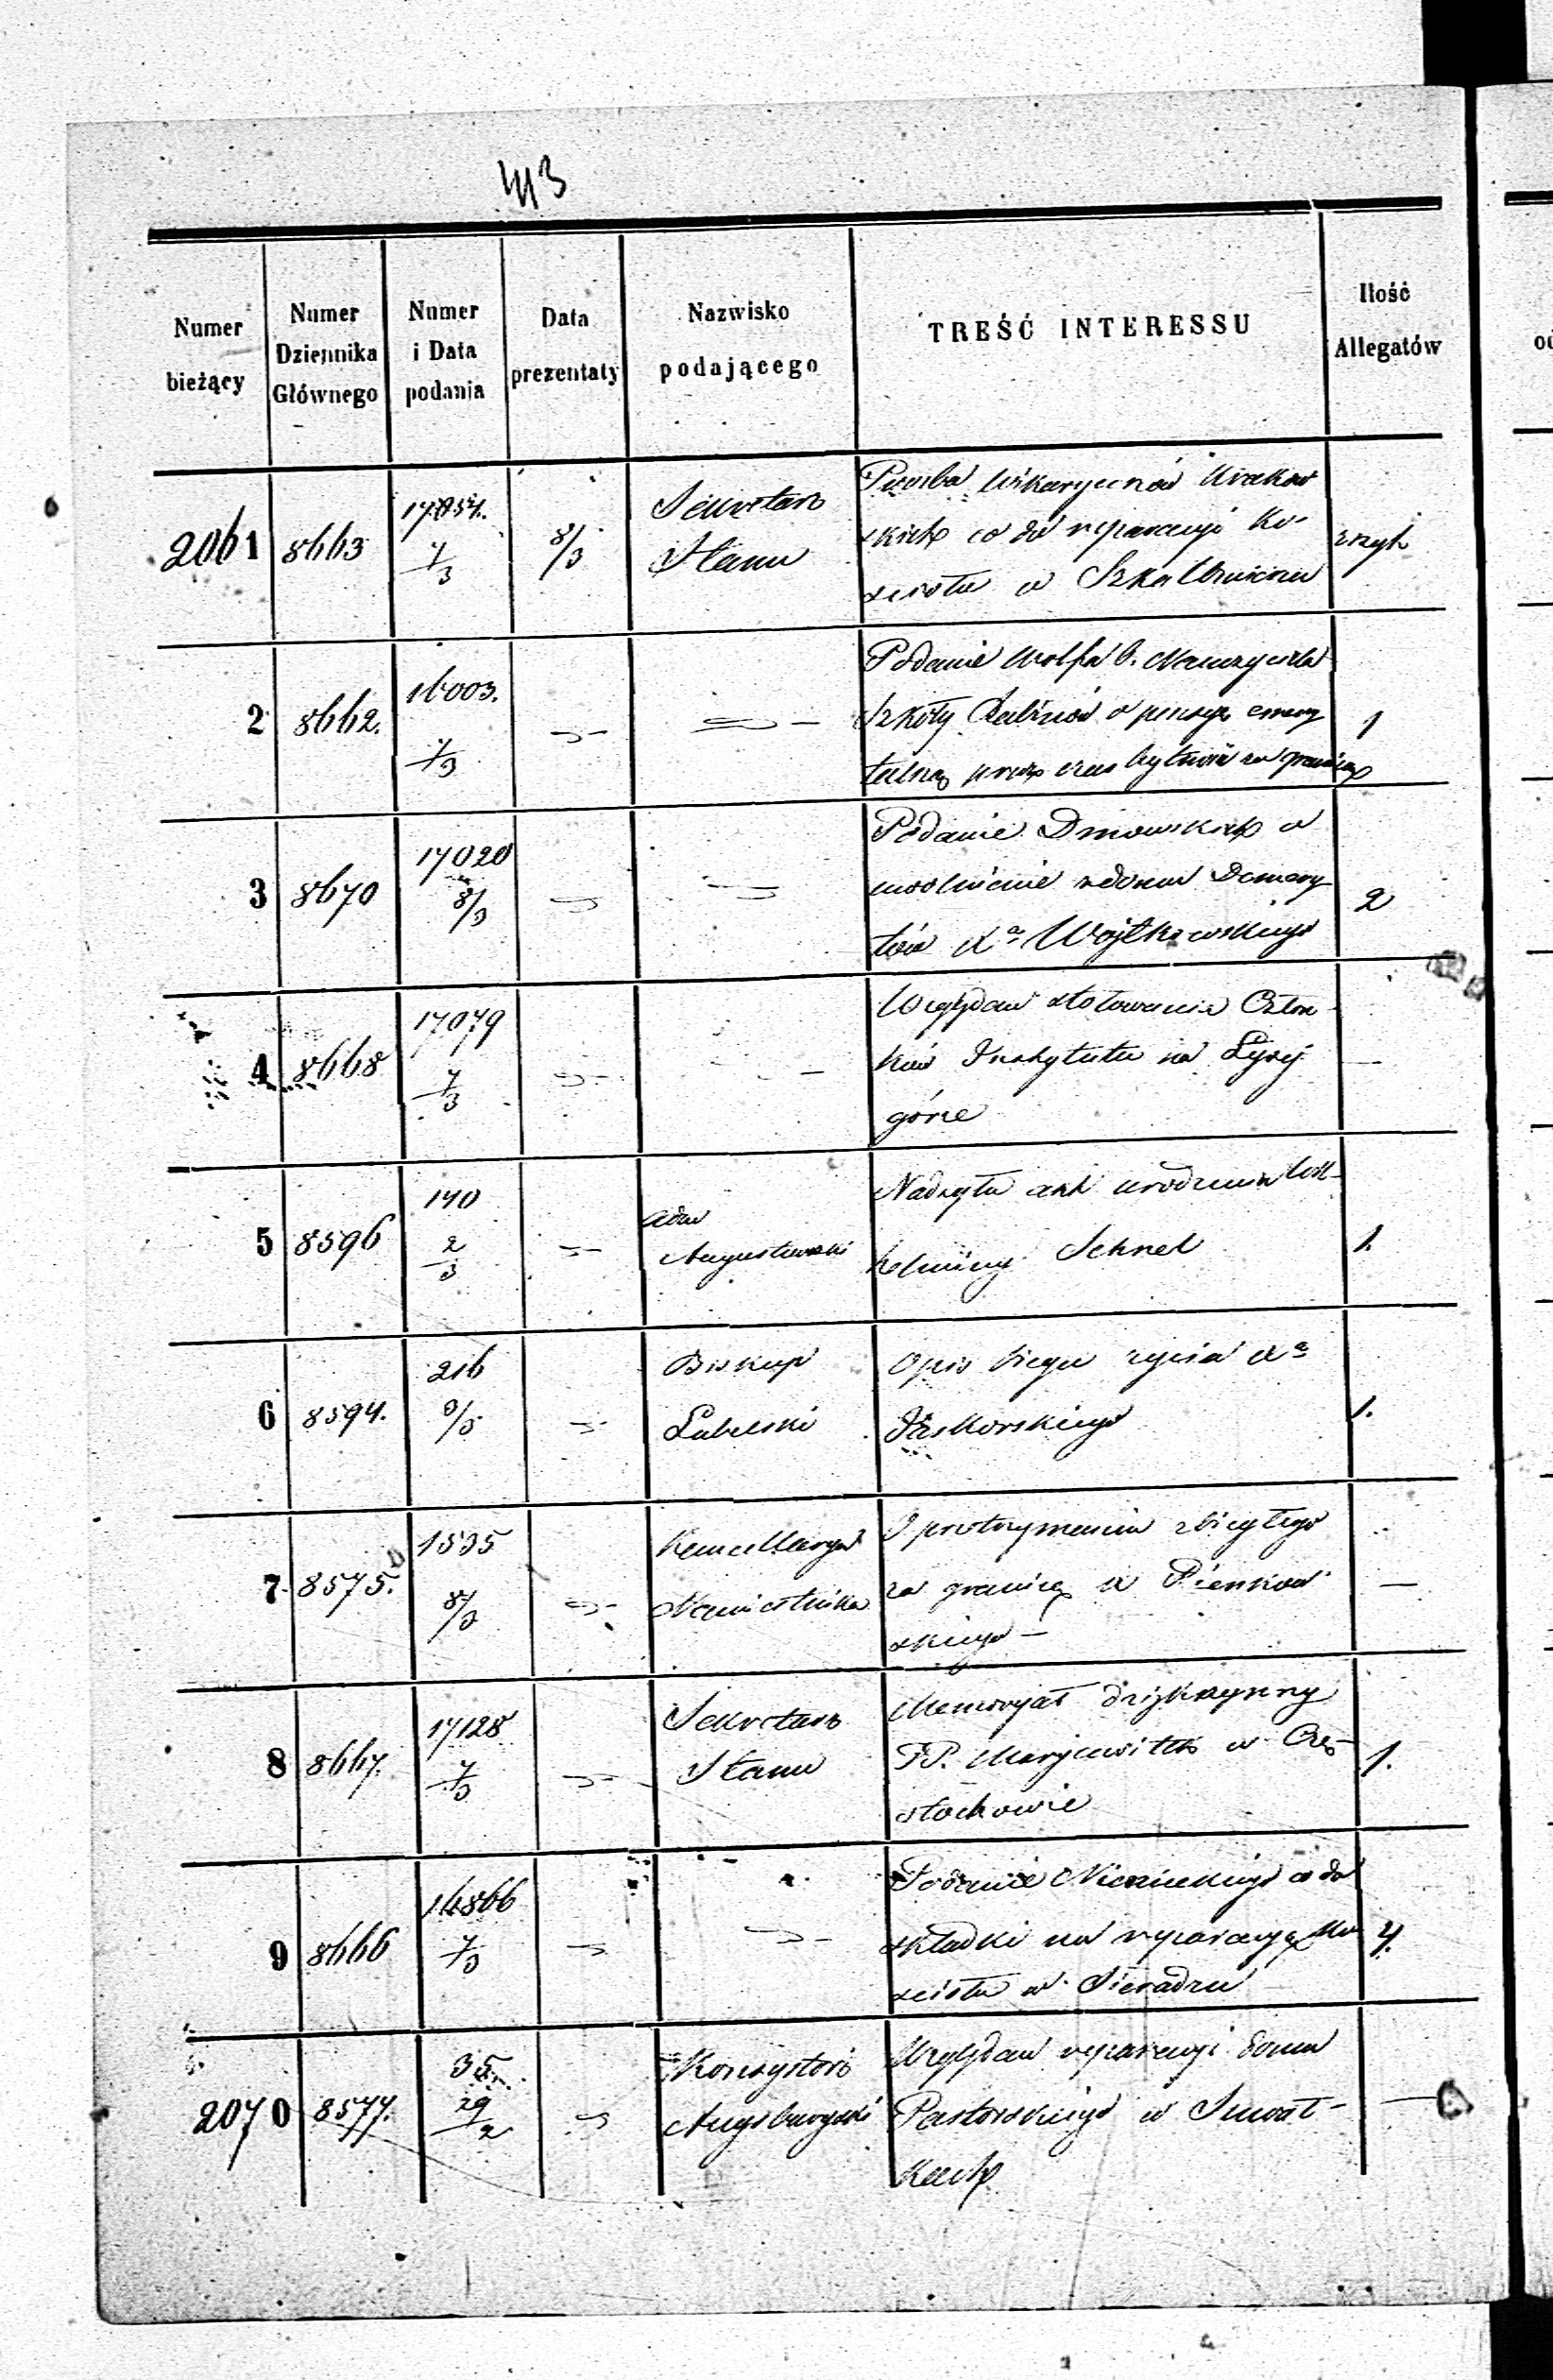 413
Numer bieżący
Numer Dziennika Głównego
Numer i Data podania
Data prezentaty
Nazwisko podającego
TREŚĆ INTERESSU
Ilość Allegatów
2061 8663 17054. 7/3 8/3 Sekretarz Stanu
Prośba Wikaryuszów Krakow
skich co do reparacyi Ko-
ścioła w Szkalbmierzu
2 8662. 16003. 7/3
Podanie Wolfa b. Nauczyciela
Szkoły Rabinów o pensyę emery
talną przez czas bytności za granicą
1
3 8670 17020 8/3
Podanie Dmowskich o
uwolnienie z domu Demery
tów Xa Wojtkowskiego
2
4 8668 17079 7/3
Względem stołowania Człon-
ków Instytutu na Łysej
górze
—
5 8596 170 2/3 Augustowski
Nadsyła akt urodzenia Wil-
helminy Schnel
1.
6 8594. 216 3/3 Biskup Lubelski
Opis biegu życia Xa
Jaskorskiego
1.
7 8575. 1535 8/3 Kancellarya Namiestnika
O przytrzymaniu zbiegłego
za granicę X Pieńkow
skiego —
—
8 8667. 17128 7/3 Sekretarz Stanu
Memoryał dziękczynny
PP. Maryawitek w Czę-
stochowie
1.
9 8666 16866 7/3
Podanie Niemieckiego co do
składki na reparacyę Ko
ścioła w Sieradzu
4.
2070 8577. 35. 29/2 Konsystorz Augsburgski
Względem reparacyi domu
Pastorskiego w Suwał-
kach
—